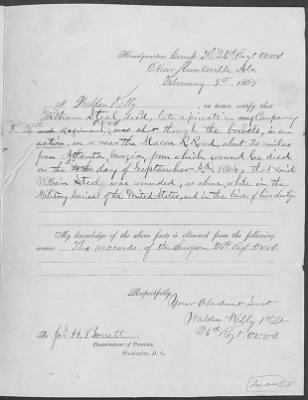 Headquarters Camp 26th Regt O.V.V.I
Near Huntsville Ala
February 8th 1865
I Walden Kelly, on honor, certify that
William Steel Dec'd, late a private in my Company
Regiment, was shot through the bowels, in an
action, on or near the Macon R Road, about 20 miles
from Atlanta, Georgia, from which wound he died
on the day of September 1864, that said
William Steel was wounded, as above, while in the
Military Service of the United States, and in the line of his duty.
My knowledge of the above facts is obtained from the following
source: The records of the Surgeon 26th Regt O.V.V.I
Respectfully,
Your Obedient Servt
Walden Kelly 1st Lt
26th Regt O.V.V.I
To Jos. H. Barrett
Commissioner of Pensions,
Washington, D. C.